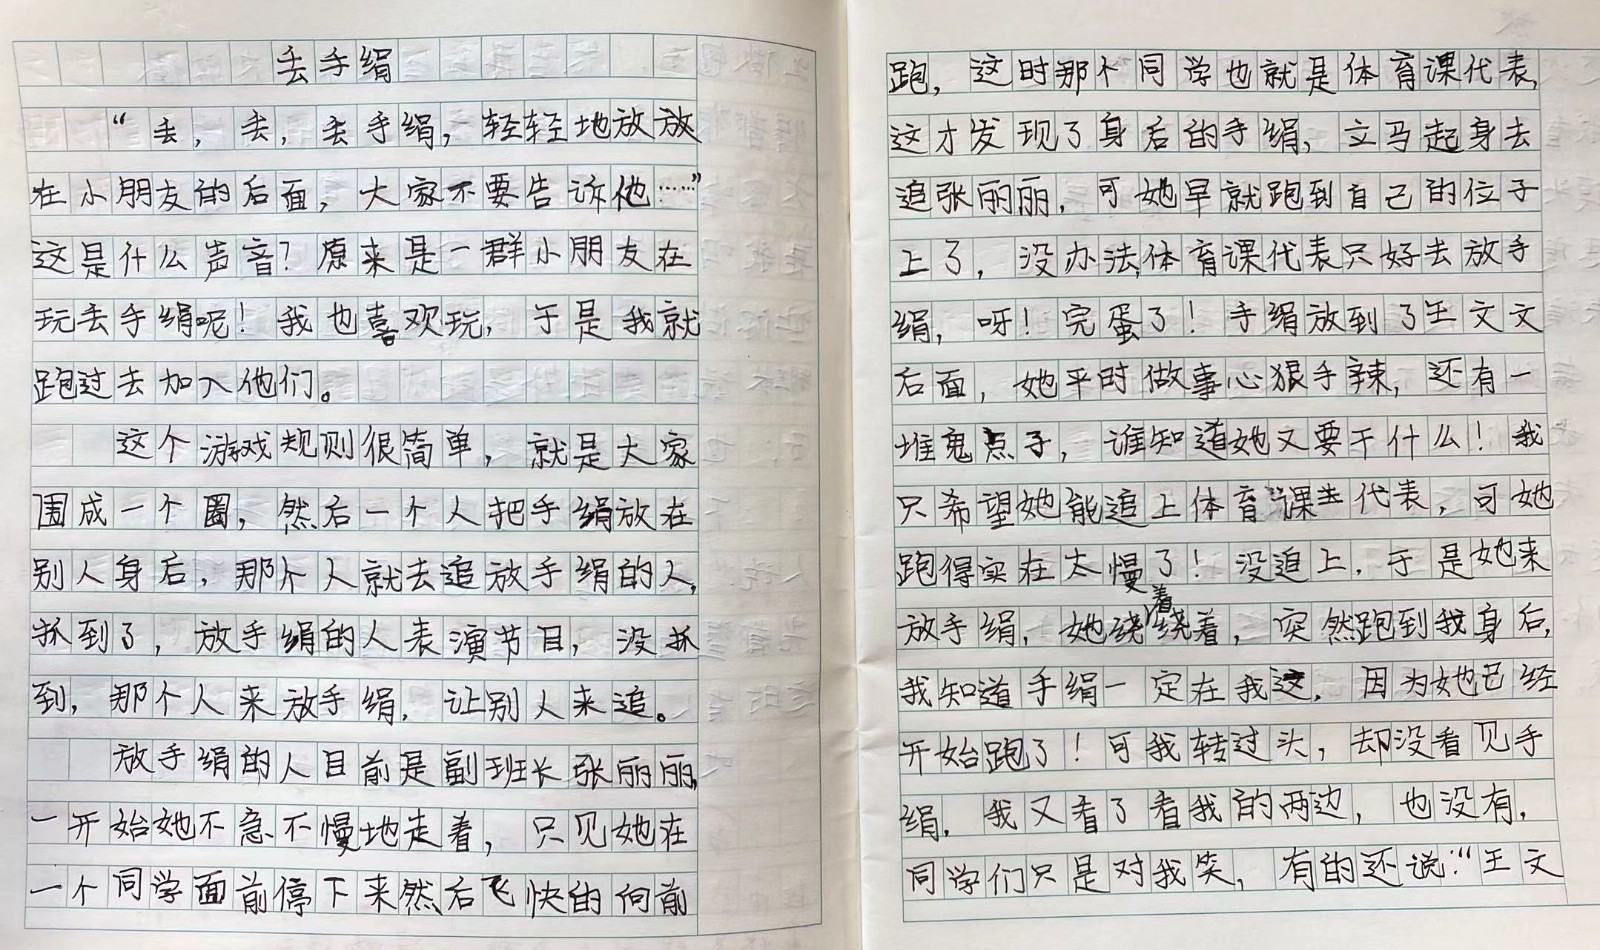 丢手绢
“丢，丢，丢手绢，轻轻地放放
在小朋友的后面，大家不要告诉他……”
这是什么声音？原来是一群小朋友在
玩丢手绢呢！我也喜欢玩，于是我就
跑过去加入他们。
这个游戏规则很简单，就是大家
围成一个圈，然后一个人把手绢放在
别人身后，那个人就去追放手绢的人，
抓到了，放手绢的人表演节目，没抓
到，那个人来放手绢，让别人来追。
放手绢的人目前是副班长张丽丽，
一开始她不急不慢地走着，只见她在
一个同学面前停下来然后飞快的向前
跑，这时那个同学也就是体育课代表，
这才发现了身后的手绢，立马起身去
追张丽丽，可她早就跑到自己的位子
上了，没办法，体育课代表只好去放手
绢，呀！完蛋了！手绢放到了王文文
后面，她平时做事心狠手辣，还有一
堆鬼点子，谁知道她又要干什么！我
只希望她能追上体育课代表，可她
跑得实在太慢了！没追上，于是她来
放手绢，她绕着绕着，突然跑到我身后，
我知道手绢一定在我这，因为她已经
开始跑了！可我转过头，却没看见手
绢，我又看了看我的两边，也没有，
同学们只是对我笑，有的还说：“王文